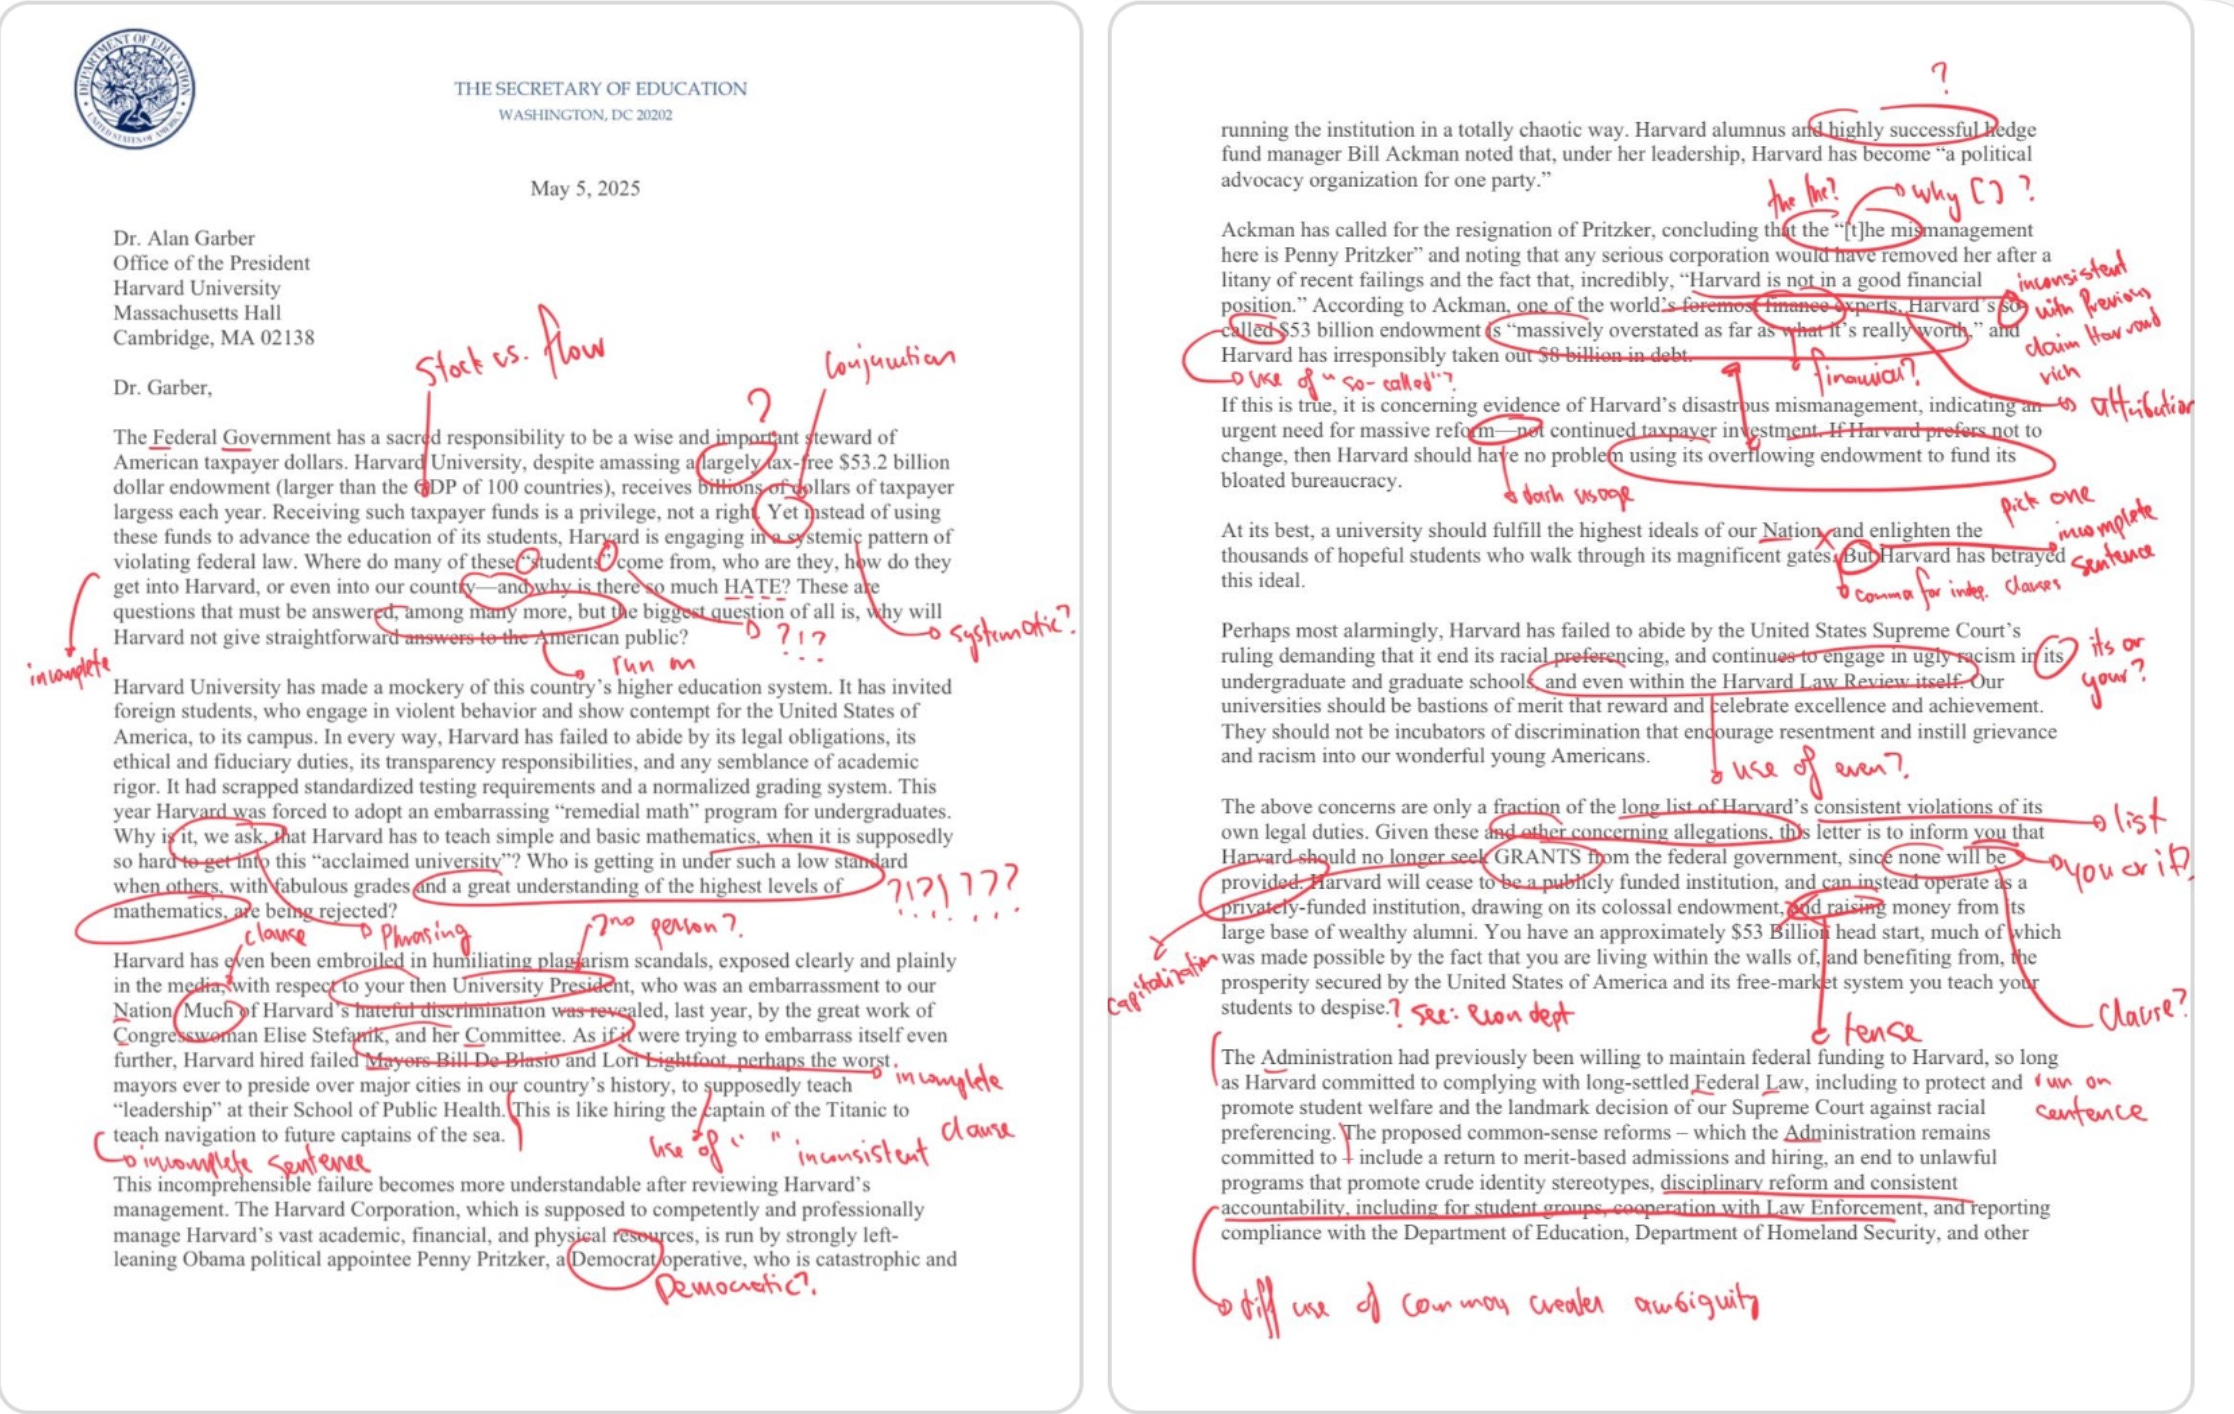 DEPARTMENT OF EDUCATION
UNITED STATES OF AMERICA
THE SECRETARY OF EDUCATION
WASHINGTON, DC 20202
May 5, 2025
Dr. Alan Garber
Office of the President
Harvard University
Massachusetts Hall
Cambridge, MA 02138
Stock vs. flow
Conjunction
Dr. Garber,
?
The Federal Government has a sacred responsibility to be a wise and important steward of
American taxpayer dollars. Harvard University, despite amassing a largely tax-free $53.2 billion
dollar endowment (larger than the GDP of 100 countries), receives billions of dollars of taxpayer
largess each year. Receiving such taxpayer funds is a privilege, not a right. Yet instead of using
these funds to advance the education of its students, Harvard is engaging in a systemic pattern of
violating federal law. Where do many of these “students” come from, who are they, how do they
get into Harvard, or even into our country—and why is there so much HATE? These are
questions that must be answered, among many more, but the biggest question of all is, why will
Harvard not give straightforward answers to the American public?
?!?
systematic?
run on
incomplete
Harvard University has made a mockery of this country’s higher education system. It has invited
foreign students, who engage in violent behavior and show contempt for the United States of
America, to its campus. In every way, Harvard has failed to abide by its legal obligations, its
ethical and fiduciary duties, its transparency responsibilities, and any semblance of academic
rigor. It had scrapped standardized testing requirements and a normalized grading system. This
year Harvard was forced to adopt an embarrassing “remedial math” program for undergraduates.
Why is it, we ask, that Harvard has to teach simple and basic mathematics, when it is supposedly
so hard to get into this “acclaimed university”? Who is getting in under such a low standard
when others, with fabulous grades and a great understanding of the highest levels of
mathematics, are being rejected?
?!?!???
clause
Phrasing
no person?
Harvard has even been embroiled in humiliating plagiarism scandals, exposed clearly and plainly
in the media, with respect to your then University President, who was an embarrassment to our
Nation. Much of Harvard’s hateful discrimination was revealed, last year, by the great work of
Congresswoman Elise Stefanik, and her Committee. As if it were trying to embarrass itself even
further, Harvard hired failed Mayors Bill De Blasio and Lori Lightfoot, perhaps the worst
mayors ever to preside over major cities in our country’s history, to supposedly teach
“leadership” at their School of Public Health. This is like hiring the captain of the Titanic to
teach navigation to future captains of the sea.
incomplete
clause
use of “ ”
inconsistent
incomplete sentence
This incomprehensible failure becomes more understandable after reviewing Harvard’s
management. The Harvard Corporation, which is supposed to competently and professionally
manage Harvard’s vast academic, financial, and physical resources, is run by strongly left-
leaning Obama political appointee Penny Pritzker, a Democrat operative, who is catastrophic and
Democratic?
?
running the institution in a totally chaotic way. Harvard alumnus and highly successful hedge
fund manager Bill Ackman noted that, under her leadership, Harvard has become “a political
advocacy organization for one party.”
the the?
why [ ] ?
Ackman has called for the resignation of Pritzker, concluding that the “[t]he mismanagement
here is Penny Pritzker” and noting that any serious corporation would have removed her after a
litany of recent failings and the fact that, incredibly, “Harvard is not in a good financial
position.” According to Ackman, one of the world’s foremost finance experts, Harvard’s so-
called $53 billion endowment is “massively overstated as far as what it’s really worth,” and
Harvard has irresponsibly taken out $8 billion in debt.
inconsistent
with previous
claim Harvard
rich
use of “so-called”?
financial?
attribution
If this is true, it is concerning evidence of Harvard’s disastrous mismanagement, indicating an
urgent need for massive reform—not continued taxpayer investment. If Harvard prefers not to
change, then Harvard should have no problem using its overflowing endowment to fund its
bloated bureaucracy.
dash usage
pick one
At its best, a university should fulfill the highest ideals of our Nation, and enlighten the
thousands of hopeful students who walk through its magnificent gates. But Harvard has betrayed
this ideal.
incomplete
sentence
comma for indep. clauses
Perhaps most alarmingly, Harvard has failed to abide by the United States Supreme Court’s
ruling demanding that it end its racial preferencing, and continues to engage in ugly racism in its
undergraduate and graduate schools, and even within the Harvard Law Review itself. Our
universities should be bastions of merit that reward and celebrate excellence and achievement.
They should not be incubators of discrimination that encourage resentment and instill grievance
and racism into our wonderful young Americans.
its or
your?
use of even?
The above concerns are only a fraction of the long list of Harvard’s consistent violations of its
own legal duties. Given these and other concerning allegations, this letter is to inform you that
Harvard should no longer seek GRANTS from the federal government, since none will be
provided. Harvard will cease to be a publicly funded institution, and can instead operate as a
privately-funded institution, drawing on its colossal endowment, and raising money from its
large base of wealthy alumni. You have an approximately $53 Billion head start, much of which
was made possible by the fact that you are living within the walls of, and benefiting from, the
prosperity secured by the United States of America and its free-market system you teach your
students to despise.
list
you or it?
capitalization
? see: econ dept
tense
clause?
The Administration had previously been willing to maintain federal funding to Harvard, so long
as Harvard committed to complying with long-settled Federal Law, including to protect and
promote student welfare and the landmark decision of our Supreme Court against racial
preferencing. The proposed common-sense reforms – which the Administration remains
committed to – include a return to merit-based admissions and hiring, an end to unlawful
programs that promote crude identity stereotypes, disciplinary reform and consistent
accountability, including for student groups, cooperation with Law Enforcement, and reporting
compliance with the Department of Education, Department of Homeland Security, and other
run on
sentence
diff use of commas creates ambiguity